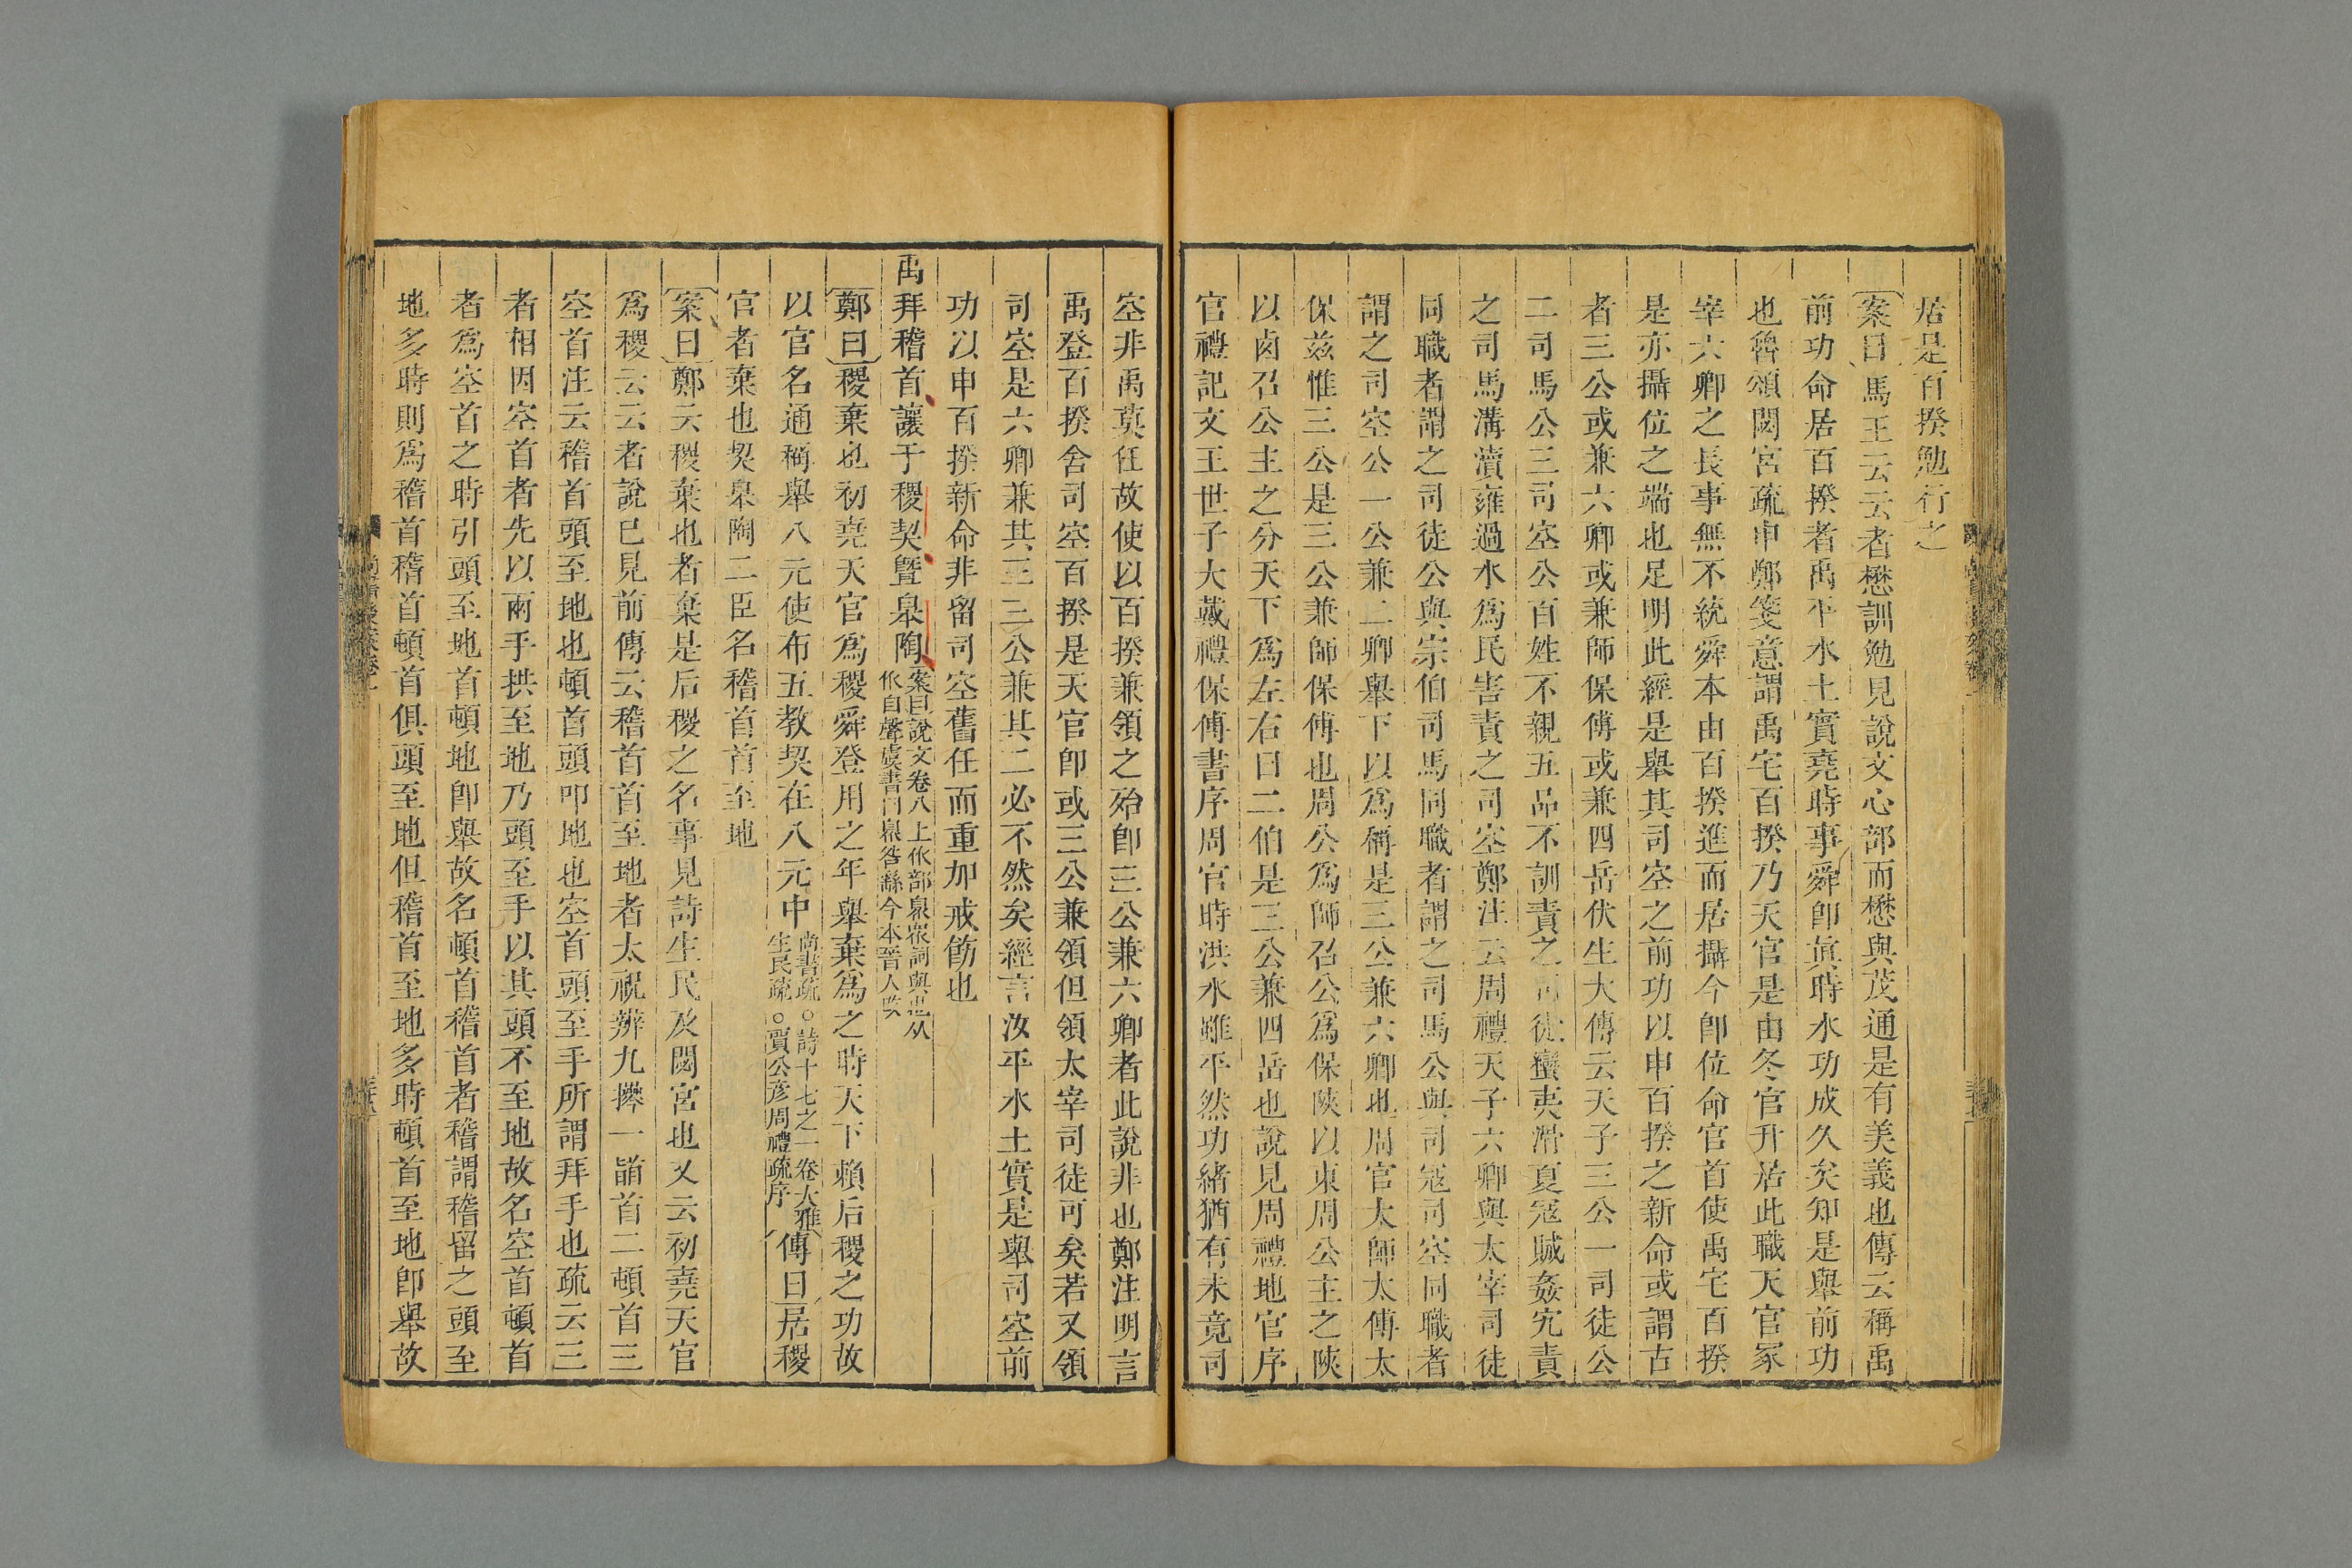 居是百揆勉行之
案曰馬王云云者懋訓勉見說文心部而懋與茂通是有美義也傳云稱禹
前功命居百揆者禹平水土實堯時事舜卽眞時水功成久矣知是舉前功
也魯頌閟宮疏申鄭箋意謂禹宅百揆乃天官是由冬官升居此職天官冢
宰六卿之長事無不統舜本由百揆進而居攝今卽位命官首使禹宅百揆
是亦攝位之端也足明此經是舉其司空之前功以申百揆之新命或謂古
者三公或兼六卿或兼師保傅或兼四岳伏生大傳云天子三公一司徒公
二司馬公三司空公百姓不親五品不訓責之司徒蠻夷滑夏寇賊姦宄責
之司馬溝瀆雍遏水爲民害責之司空鄭注云周禮天子六卿與太宰司徒
同職者謂之司徒公與宗伯司馬同職者謂之司馬公與司寇司空同職者
謂之司空公一公兼二卿舉下以爲稱是三公兼六卿也周官太師太傅太
保茲惟三公是三公兼師保傅也周公爲師召公爲保陜以東周公主之陜
以卤召公主之分天下爲左右曰二伯是三公兼四岳也說見周禮地官序
官禮記文王世子大戴禮保傅書序周官時洪水雖平然功緒猶有未竟司
空非禹莫任故使以百揆兼領之殆卽三公兼六卿者此說非也鄭注明言
禹登百揆舍司空百揆是天官卽或三公兼領但領太宰司徒可矣若又領
司空是六卿兼其三三公兼其二必不然矣經言汝平水土實是舉司空前
功以申百揆新命非留司空舊任而重加戒飭也
禹拜稽首讓于稷契曁皋陶案曰說文卷八上㐺部臮衆詞與也从
㐺自聲虞書曰臮咎繇今本晉人改
鄭曰稷棄也初堯天官爲稷舜登用之年舉棄爲之時天下賴后稷之功故
以官名通稱舉八元使布五教契在八元中尚書疏○詩十七之一卷大雅
生民疏○賈公彥周禮疏序傳曰居稷
官者棄也契皋陶二臣名稽首首至地
案曰鄭云稷棄也者棄是后稷之名事見詩生民及閟宮也又云初堯天官
爲稷云云者說已見前傳云稽首首至地者太祝辨九㩺一䭫首二頓首三
空首注云稽首頭至地也頓首頭叩地也空首頭至手所謂拜手也疏云三
者相因空首者先以兩手拱至地乃頭至手以其頭不至地故名空首頓首
者爲空首之時引頭至地首頓地卽舉故名頓首稽首者稽謂稽留之頭至
地多時則爲稽首稽首頓首俱頭至地但稽首至地多時頓首至地卽舉故